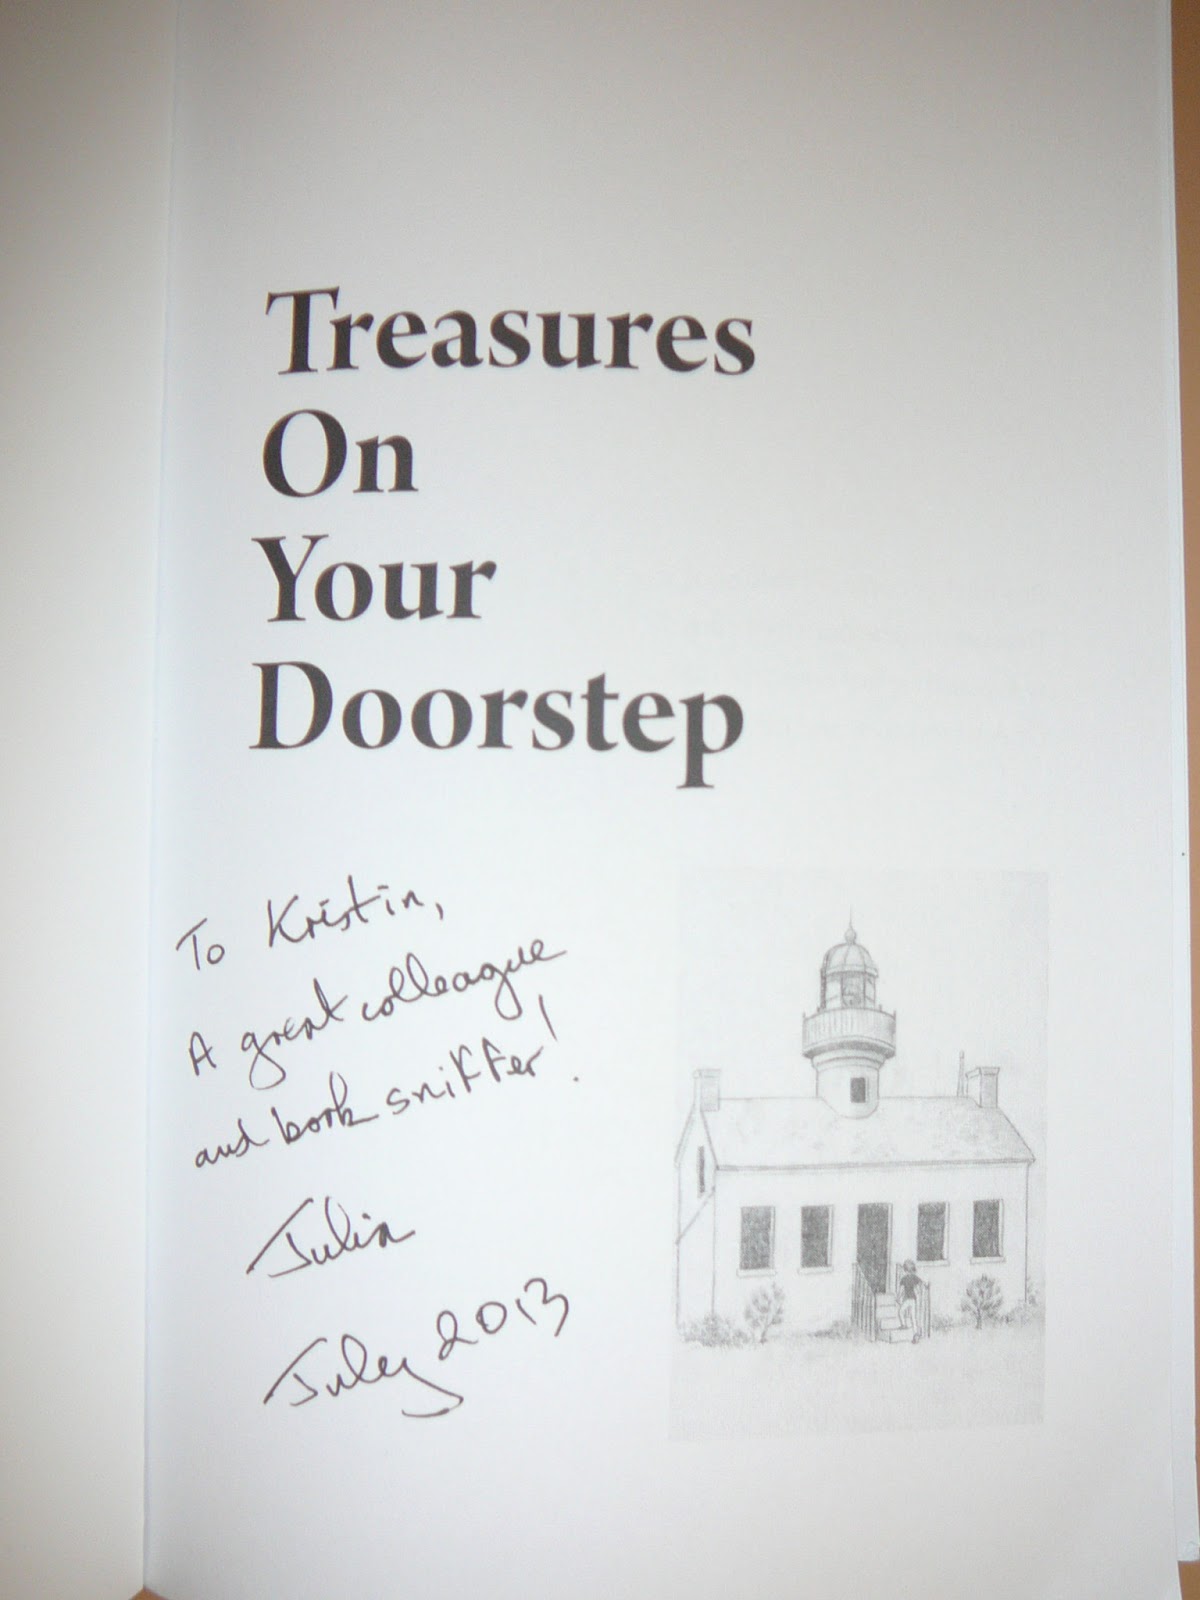 Treasures
On
Your
Doorstep
To Kristin,
A great colleague
and book sniffer!
Julia
July 2013